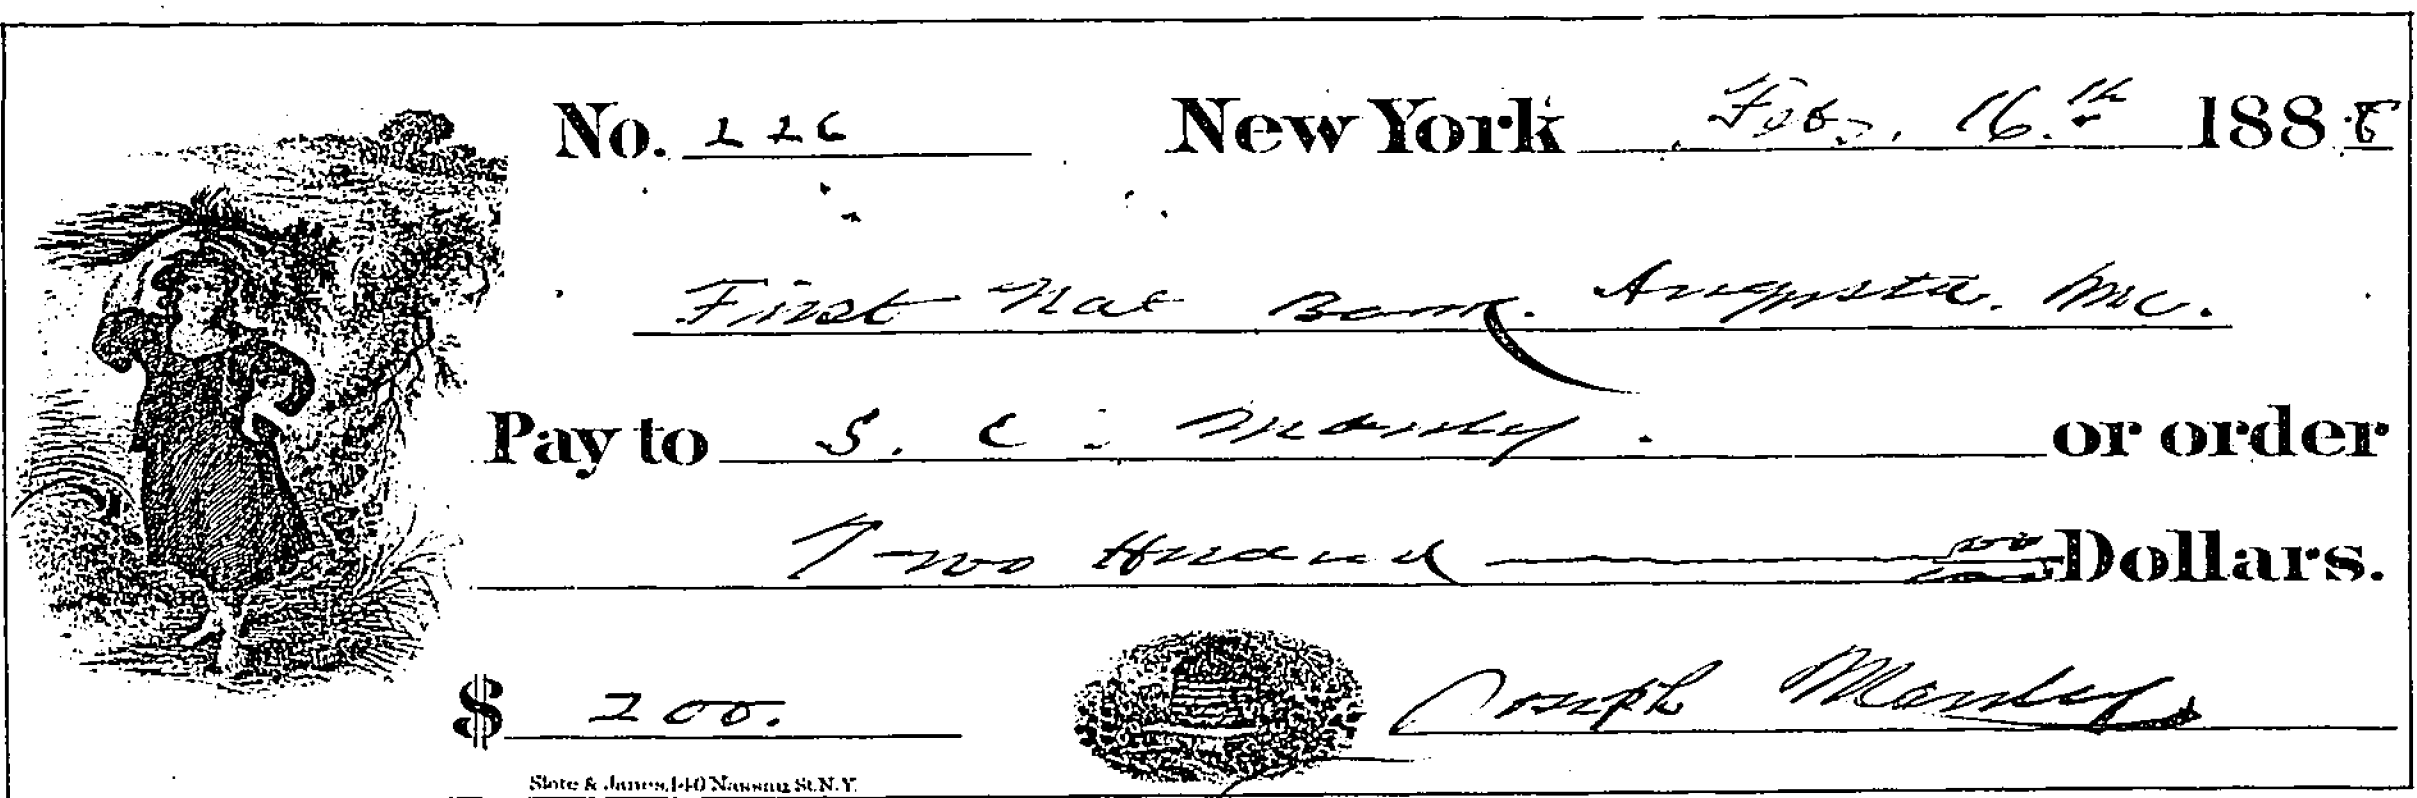 No. 226 New York Feb. 16.th 1888
First Nat Bank. Augusta. Me.
Pay to S. C. Manley. or order
Two Hundred 00/100 Dollars.
$ 200. Joseph Manley
Slote & Janes, 140 Nassau St. N.Y.